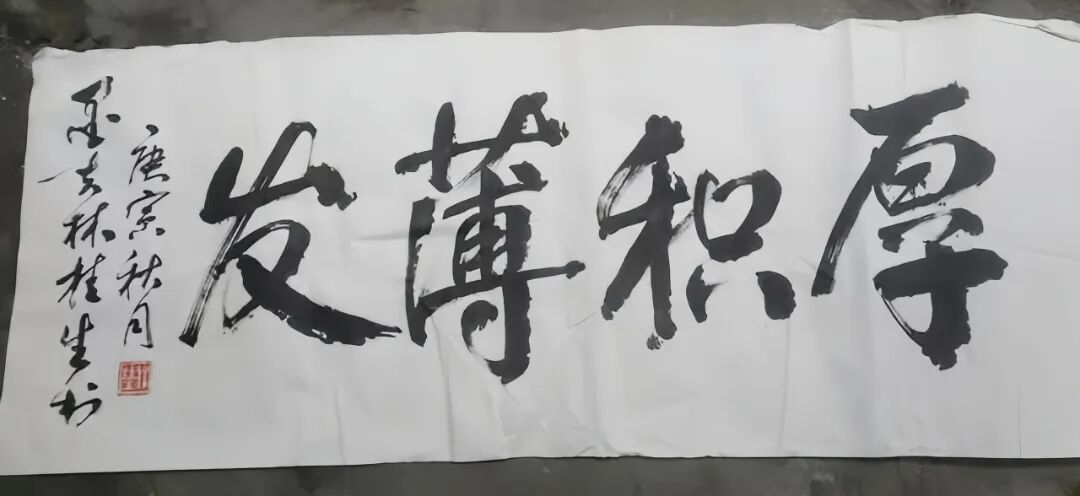 厚积薄发
庚寅秋月
林桂生书